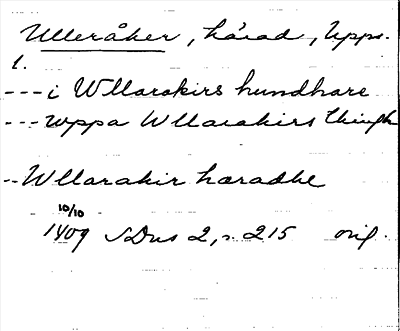 Ulleråker, härad, Upps.
1.
--- i Wllarakirs hundhare
--- uppa Wllarakirs thingh
-- Wllarakir hæradhe
10/10
1409 SDns 2, s. 215 orig.